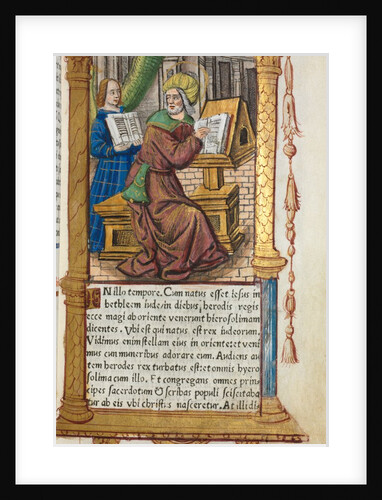 IN illo tempore. Cum natus esset iesus in
bethleem iude in diebus, herodis regis
ecce magi ab oriente venerunt hierosolimam
dicentes. Ubi est qui natus est rex iudeorum.
Vidimus enim stellam eius in oriente: et veni
mus cum muneribus adorare eum. Audiens au
tem herodes rex turbatus est: et omnis hyero
solima cum illo. Et congregans omnes prin
cipes sacerdotum & scribas populi sciscitaba
tur ab eis vbi christus nasceretur. At illi di